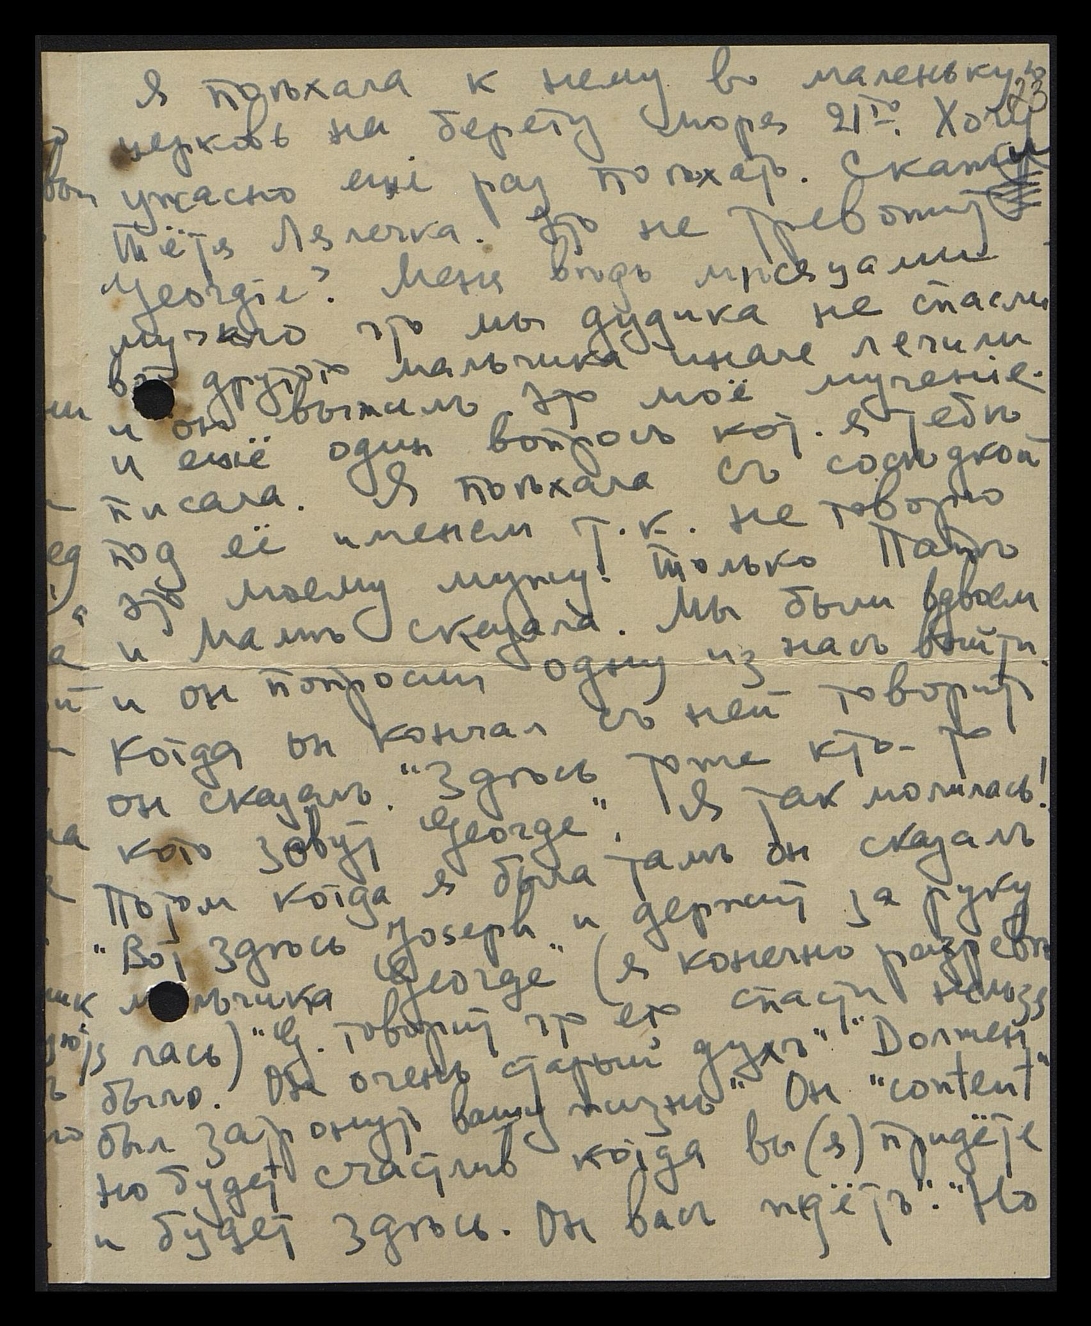 23
Я поѣхала к нему во маленькую
церковь на берегу моря 21го. Хочу
ужасно ещё раз поѣхать. Скажи
тётя Лялечка. Это не тревожит
Georgie? Меня вѣдь мѣсяцами
мучило что мы дудика не спасли
вот другого мальчика иначе лечили
и он выжилъ. Это моё мученіе.
и ещё один вопросъ кот. я тебѣ
писала. Я поѣхала съ сосѣдкой
под её именем т.к. не говорю
это моему мужу! Только Папѣ
и Мамѣ сказала. Мы были вдвоем
и он попросил одну из насъ выйти.
Когда он кончал съ ней говорить
он сказалъ. "Здѣсь тоже кто-то
кого зовут George". Я так молилась!
Потом когда я была тамъ он сказалъ
"Вот здѣсь Joseph и держит за руку
мальчика George" (я конечно разреве
лась) "G. говорит что его спасти нельзя
было. Он очень старый духъ" "Должен
был затронуть вашу жизнь" Он "content"
но будет счастлив когда вы (я) придёте
и будет здѣсь. Он васъ ждётъ". "Но